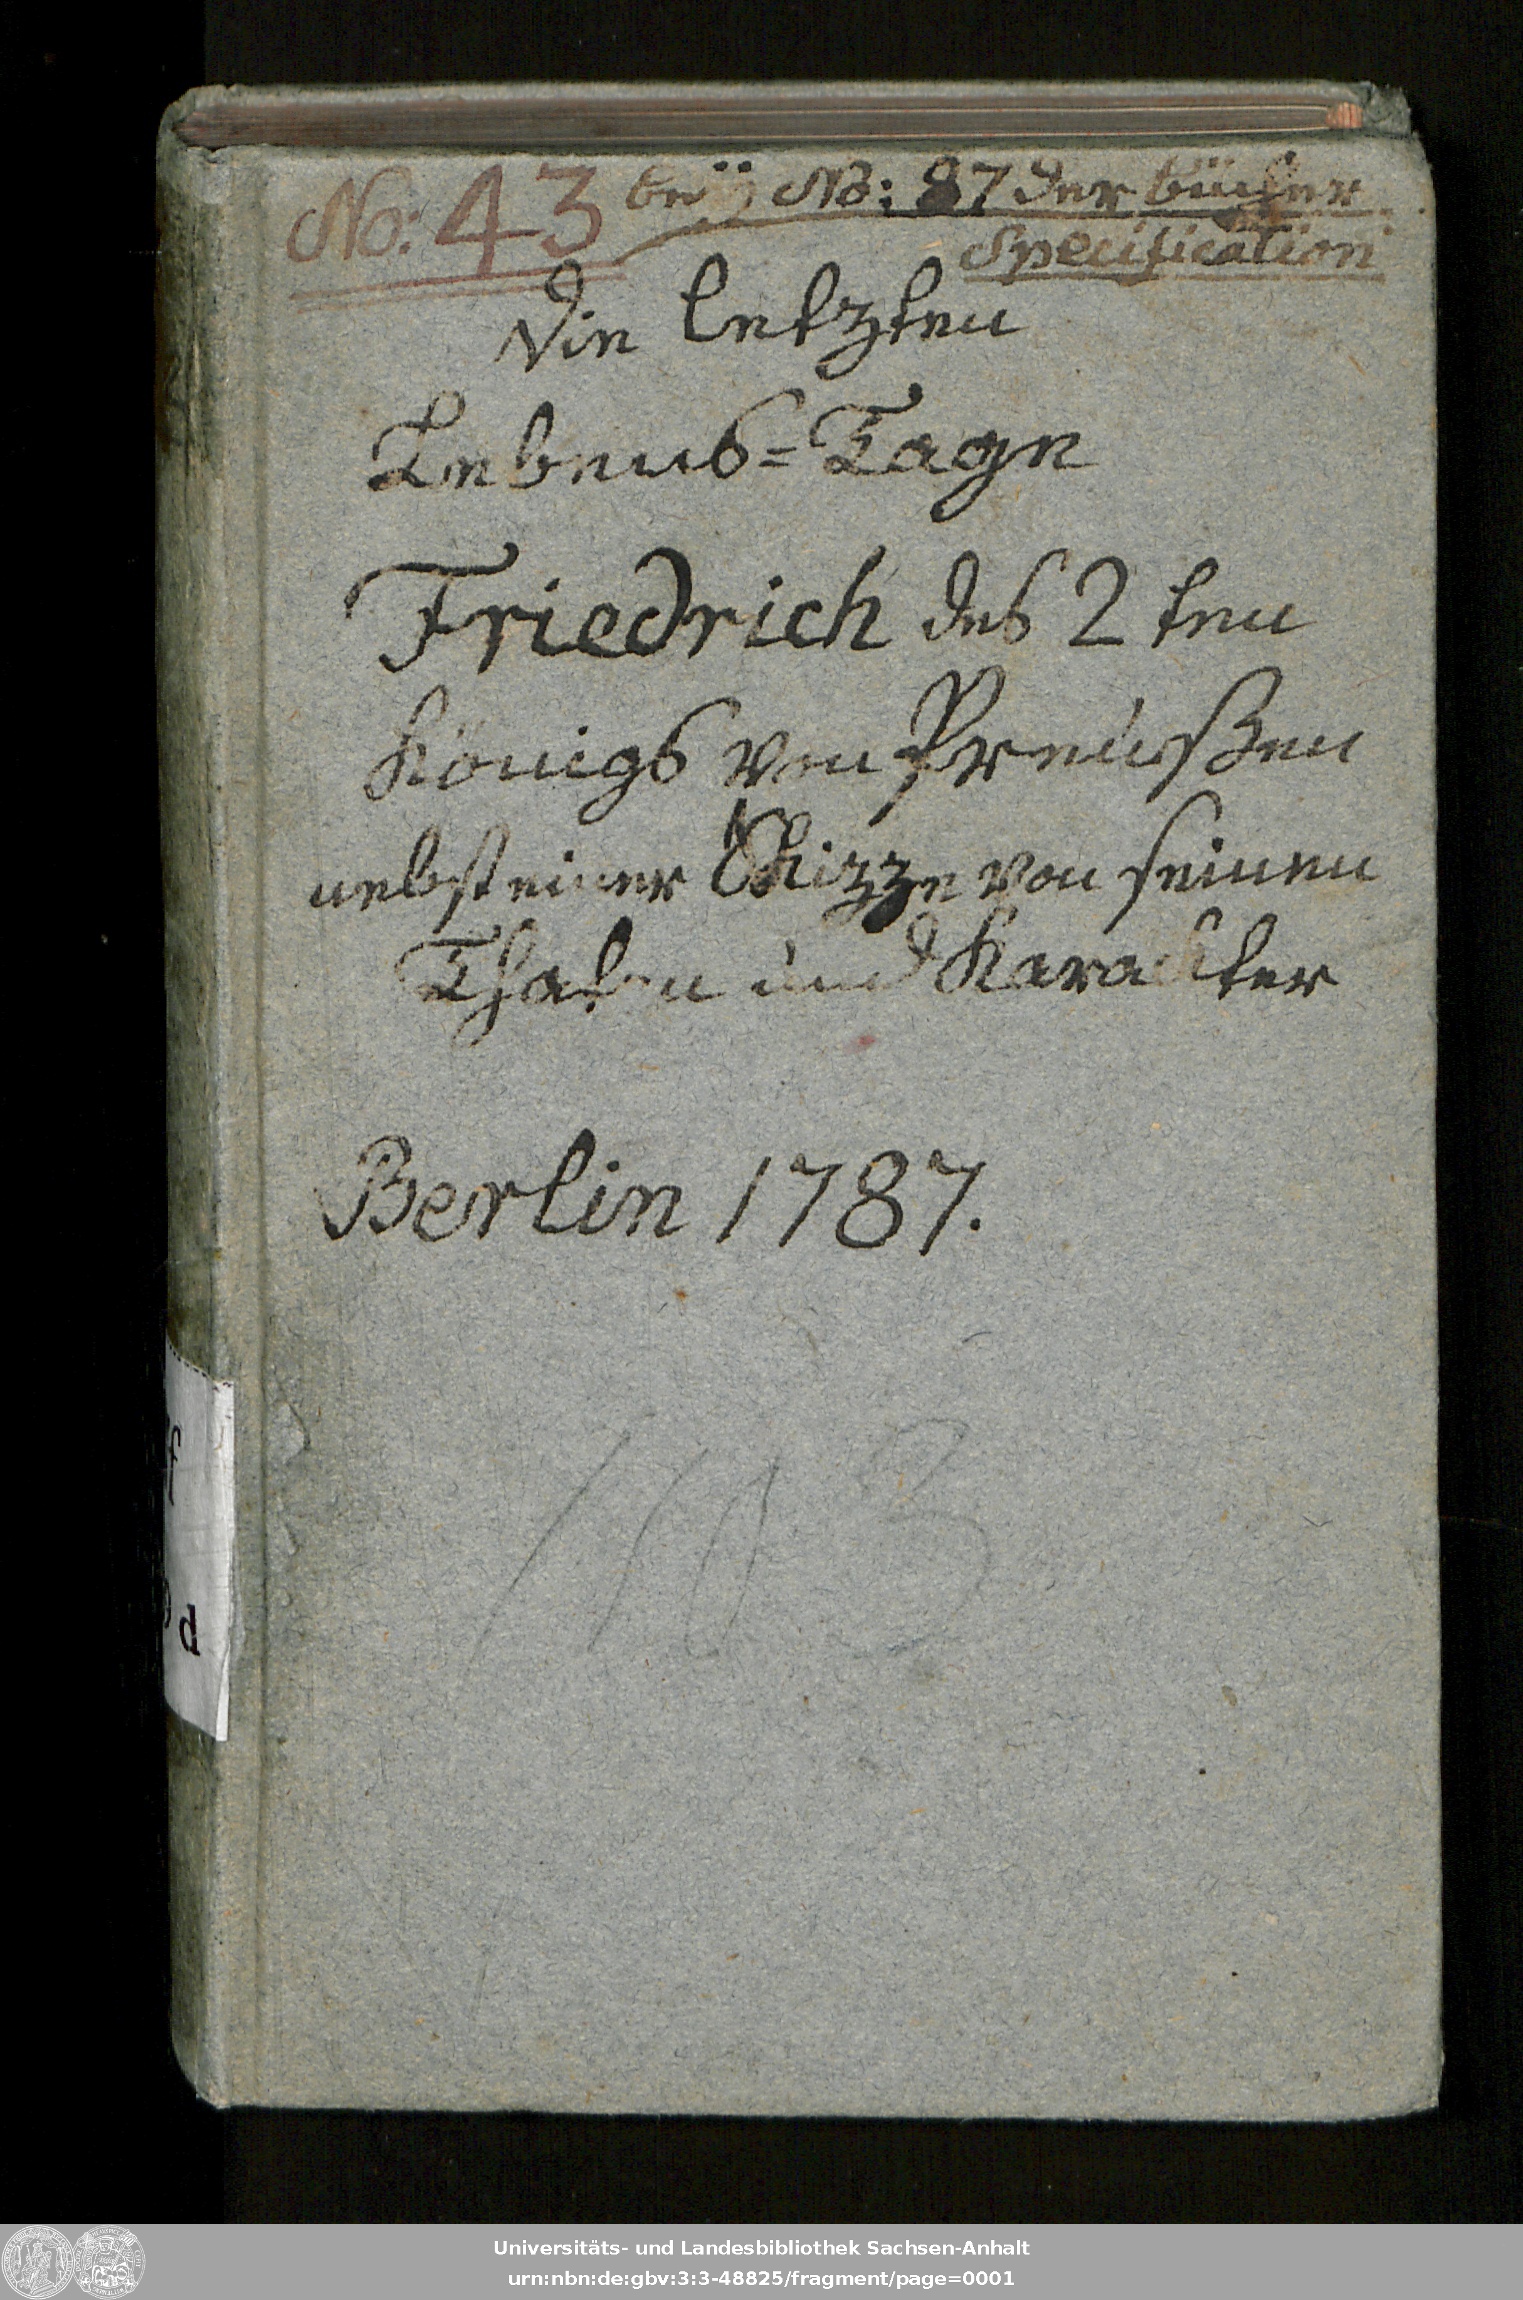 No: 43 beÿ No: 87 der bücher
Specification
Die letzten
Lebens=Tage
Friedrich des 2ten
Königs von Preußen
nebst einer Skizze von seinen
Thaten und Karackter
Berlin 1787.
d
Universitäts- und Landesbibliothek Sachsen-Anhalt
urn:nbn:de:gbv:3:3-48825/fragment/page=0001